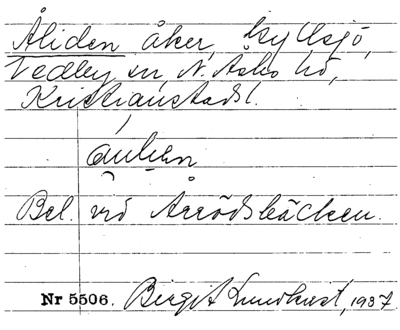 Åliden åker, Kyllsjö,
Vedby sn, N. Åsbo hd,
Kristianstads l.
Bel. vid Årrödsbäcken.
Nr 5506. Birgit Lundkvist, 1937